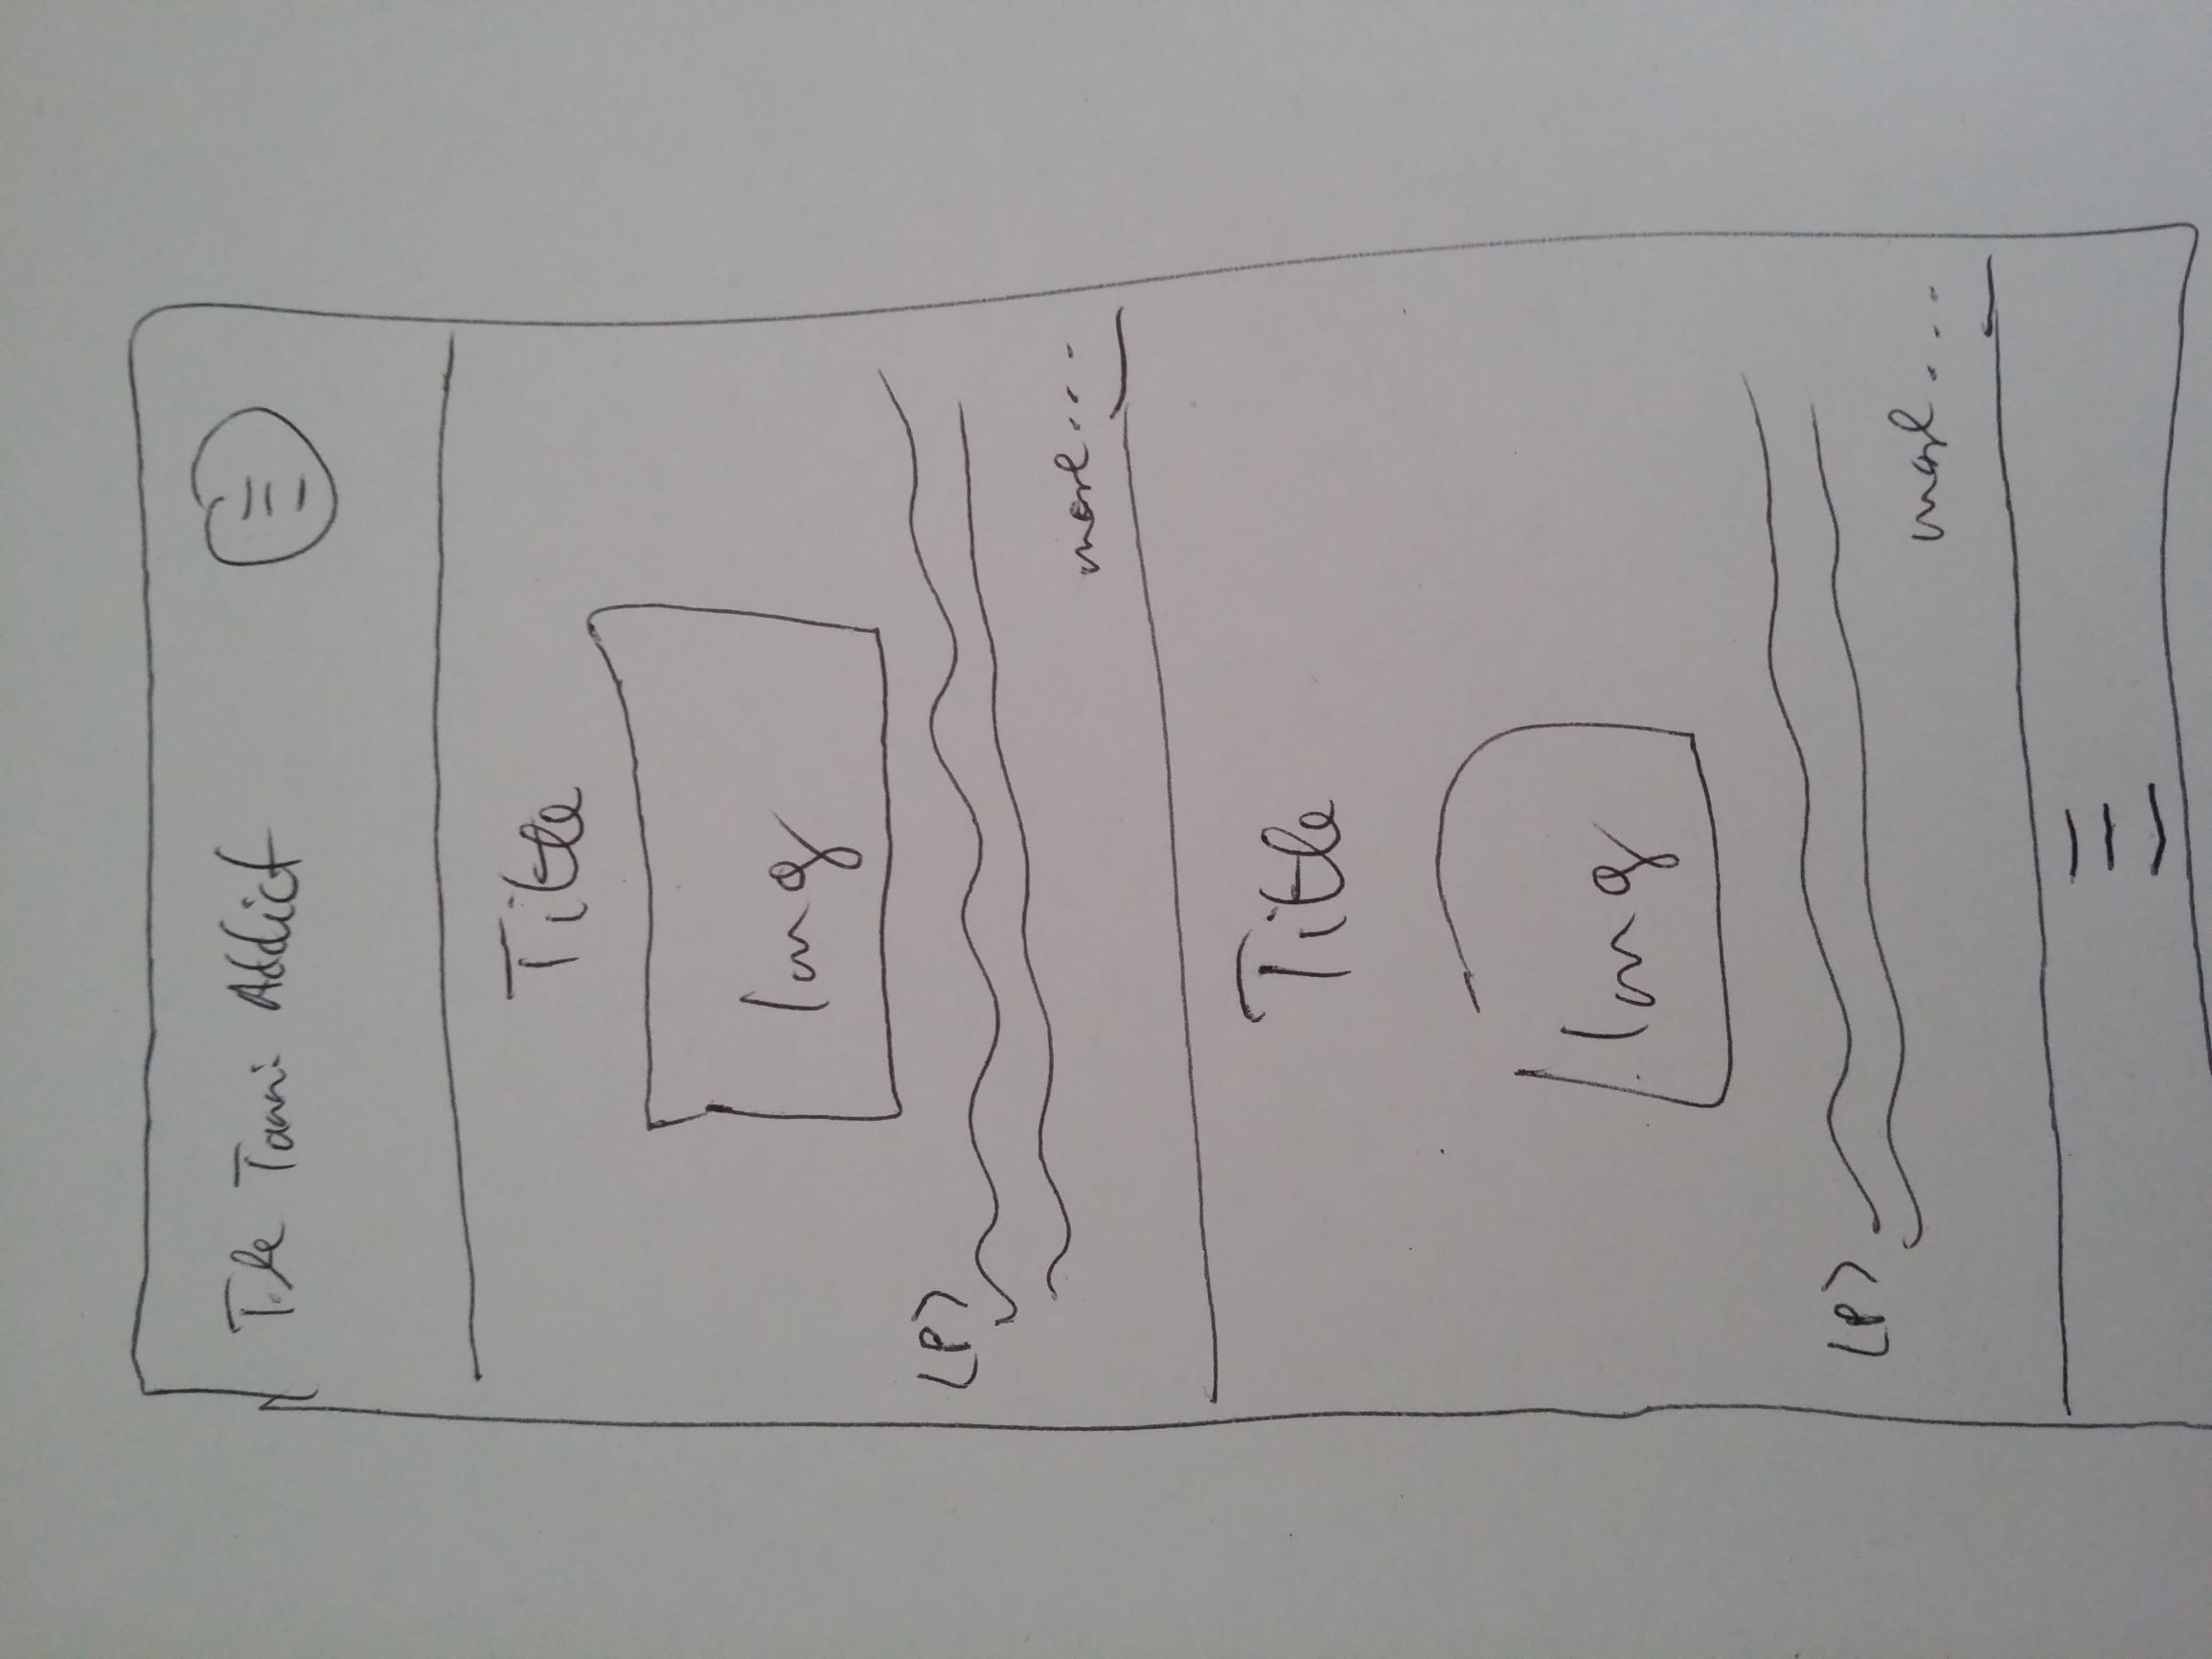 The Tanni Addict
Title
long
<P>
more...
Title
long
<P>
more...